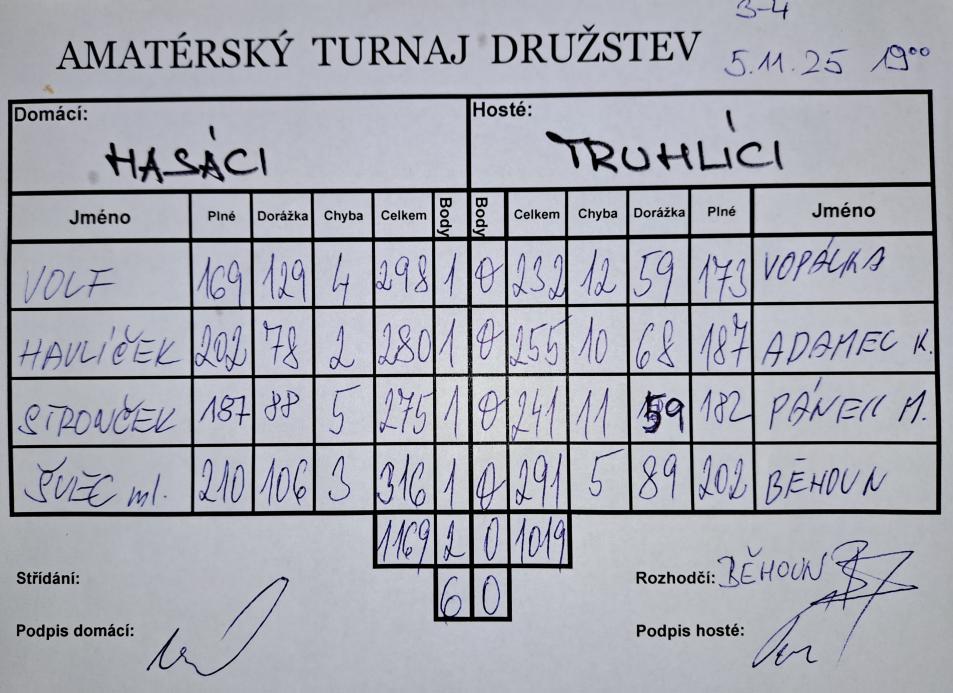 3-4
AMATÉRSKÝ TURNAJ DRUŽSTEV 5.11.25 19⁰⁰
Domácí: Hosté:
HASÁCI TRUHLÍCI
Jméno Plné Dorážka Chyba Celkem Body Body Celkem Chyba Dorážka Plné Jméno
VOLF 169 129 4 298 1 0 232 12 59 173 VOPÁLKA
HAVLÍČEK 202 78 2 280 1 0 255 10 68 187 ADAMEC K.
187 88 5 275 1 0 241 11 59 182 PÁNEK M.
ŠVEC ml. 210 106 3 316 1 0 291 5 89 202 BĚHOUN
1169 2 0 1019
6 0
Střídání: Rozhodčí: BĚHOUN
Podpis domácí: Podpis hosté: